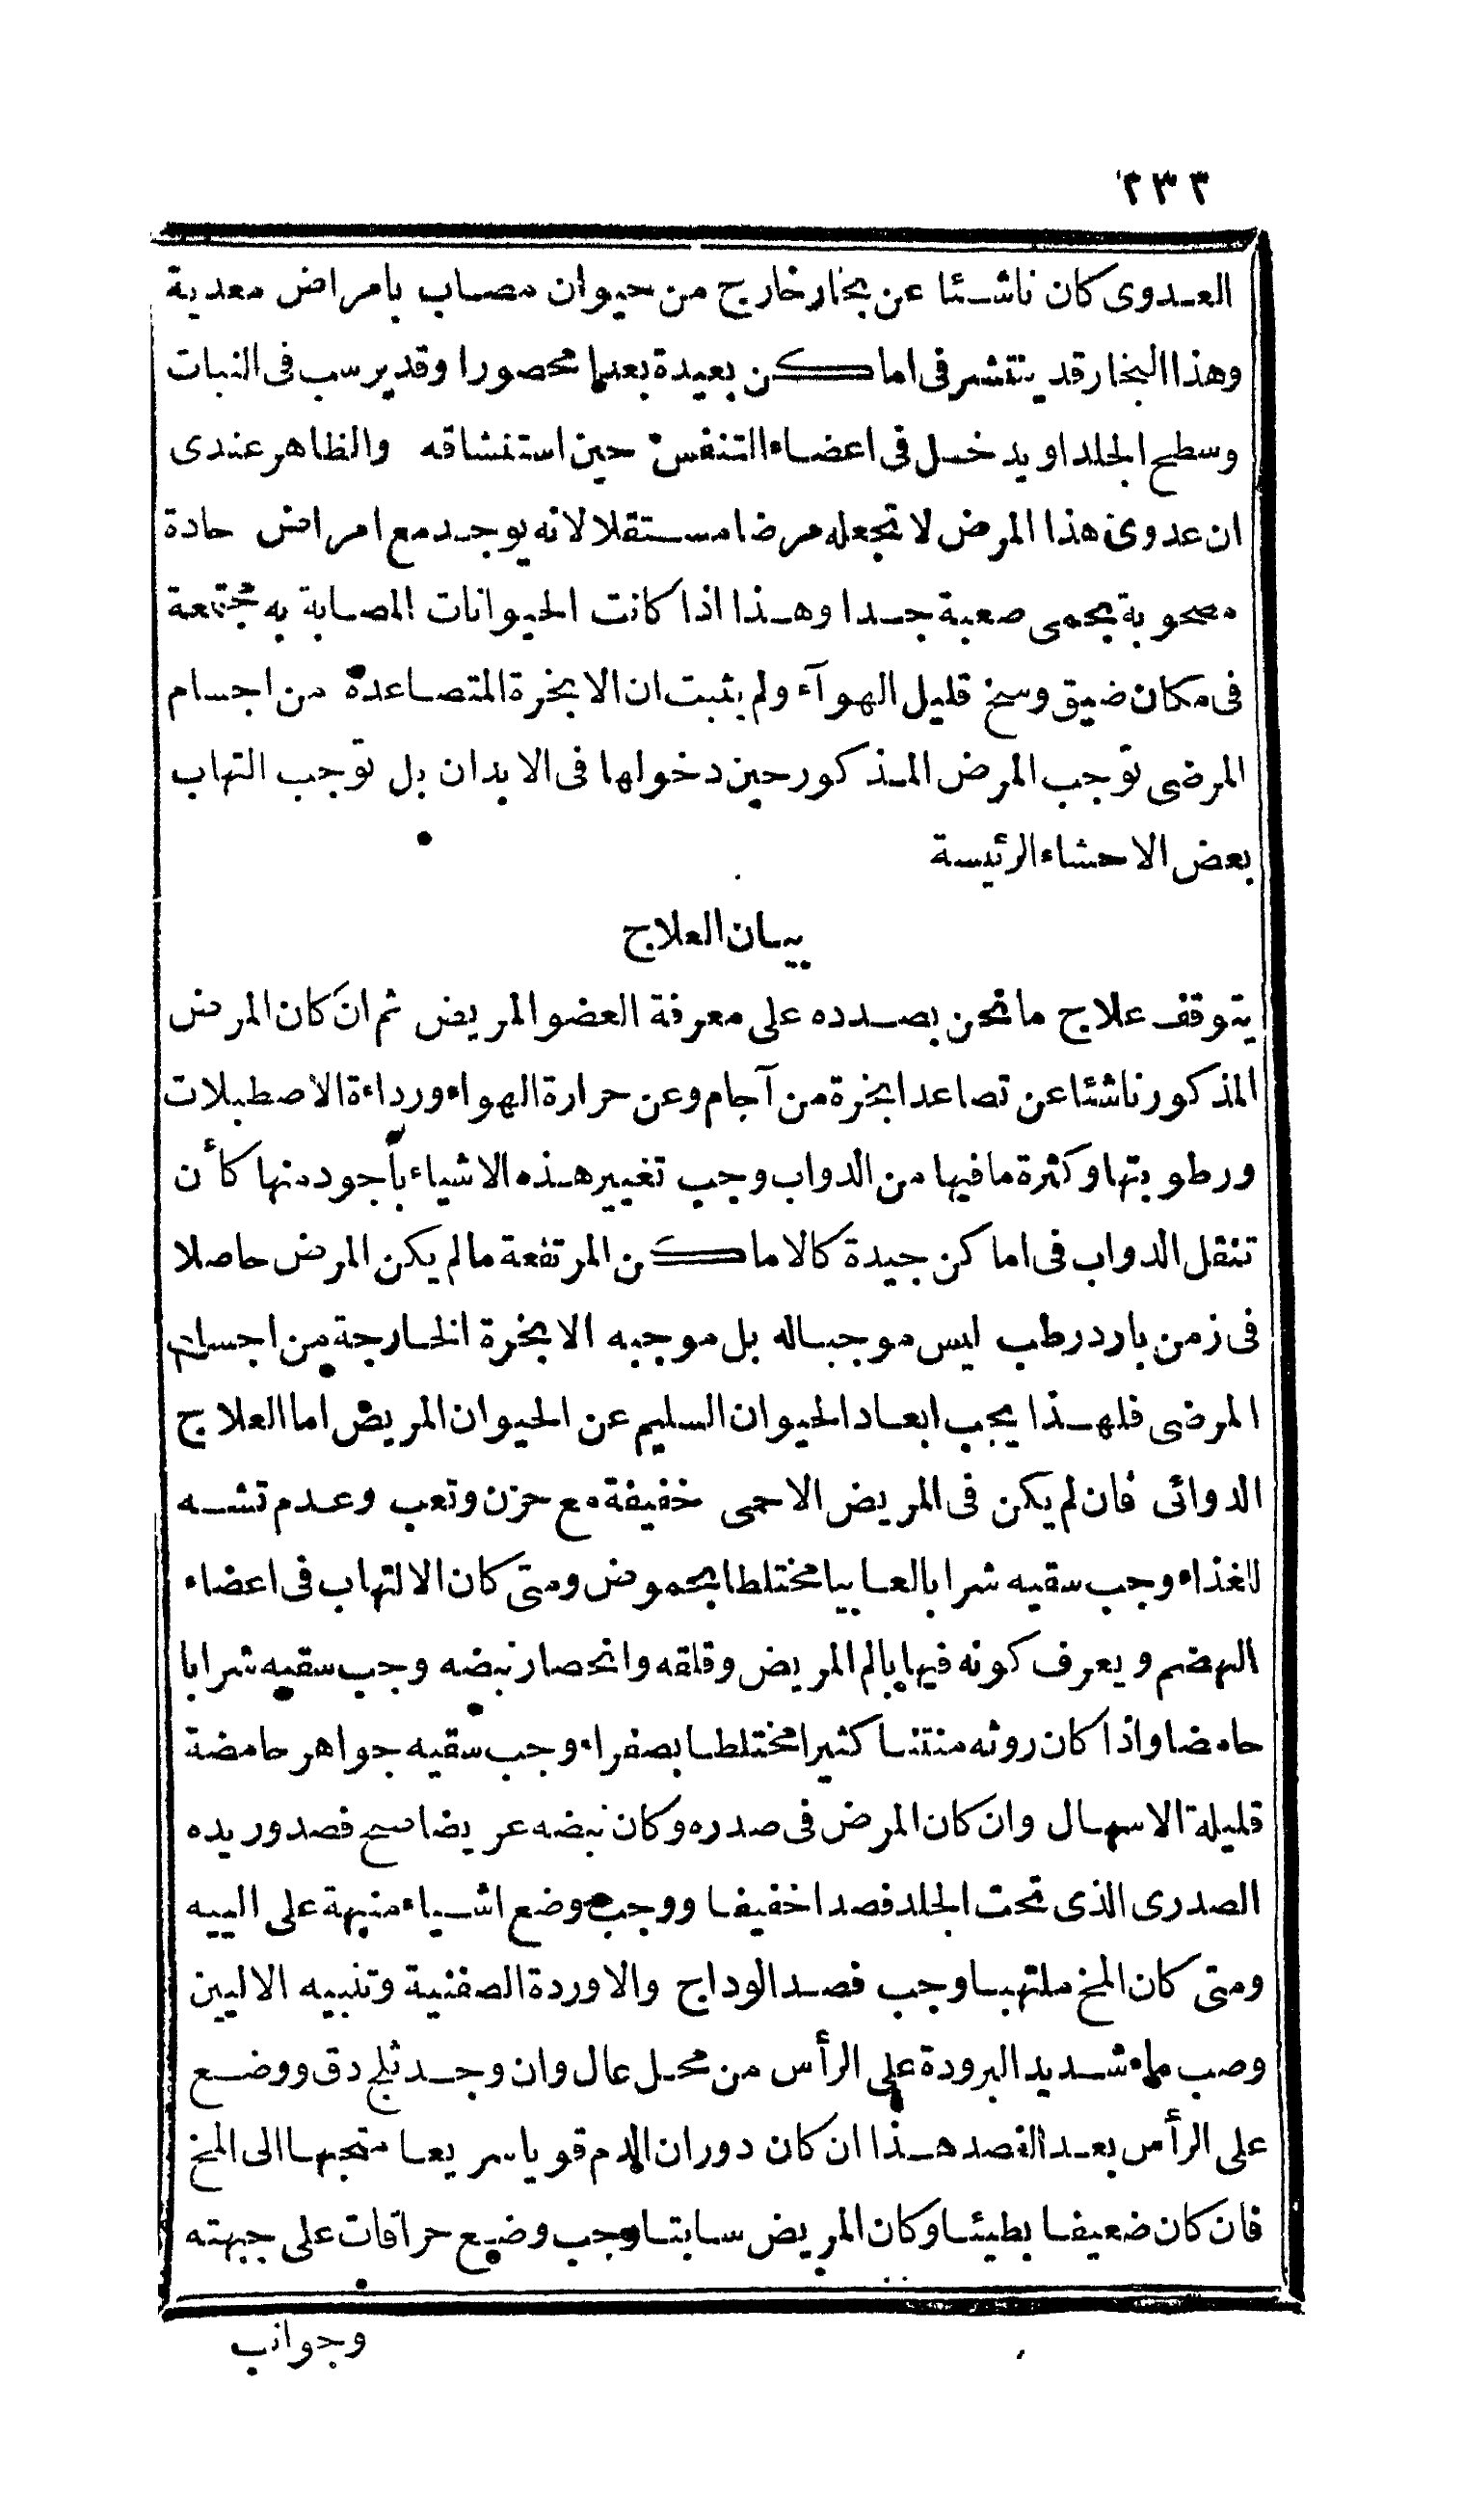 ٢٣٢
العدوى كان ناشئا عن بخار خارج من حيوان مصاب بامراض معدية
وهذا البخار قد ينتشر فى اماكن بعيدة بعدا محصورا وقد يرسب فى النبات
وسطح الجلد او يدخل فى اعضاء التنفس حين استنشاقه والظاهر عندى
ان عدوى هذا المرض لا تجعله مرضا مستقلا لانه يوجد مع امراض حادة
مصحوبة بحمى صعبة جدا وهذا اذا كانت الحيوانات المصابة به مجتمعة
فى مكان ضيق وسخ قليل الهوآء ولم يثبت ان الابخرة المتصاعدة من اجسام
المرضى توجب المرض المذكور حين دخولها فى الابدان بل توجب التهاب
بعض الاحشاء الرئيسة
بيان العلاج
يتوقف علاج ما نحن بصدده على معرفة العضو المريض ثم ان كان المرض
المذكور ناشئا عن تصاعد ابخرة من آجام وعن حرارة الهواء ورداءة الاصطبلات
ورطوبتها وكثرة ما فيها من الدواب وجب تغيير هذه الاشياء بأجود منها كأن
تنقل الدواب فى اماكن جيدة كالاماكن المرتفعة ما لم يكن المرض حاصلا
فى زمن بارد رطب ليس موجبا له بل موجبه الابخرة الخارجة من اجسام
المرضى فلهذا يجب ابعاد الحيوان السليم عن الحيوان المريض اما العلاج
الدوائى فان لم يكن فى المريض الا حمى خفيفة مع حزن وتعب وعدم تشه
للغذاء وجب سقيه شرابا لعابيا مختلطا بحموض ومتى كان الالتهاب فى اعضاء
الهضم ويعرف كونه فيها بالم المريض وقلقه وانحصار نبضه وجب سقيه شرابا
حامضا واذا كان روثه منتنا كثيرا مختلطا بصفراء وجب سقيه جواهر حامضة
قليلة الاسهال وان كان المرض فى صدره وكان نبضه عريضا صح فصد وريده
الصدرى الذى تحت الجلد فصدا خفيفا ووجب وضع اشياء منبهة على الييه
ومتى كان المخ ملتهبا وجب فصد الوداج والاوردة الصفنية وتنبيه الاليين
وصب ماء شديد البرودة على الرأس من محل عال وان وجد ثلج دق ووضع
على الرأس بعد الفصد هذا ان كان دوران الدم قويا سريعا متجها الى المخ
فان كان ضعيفا بطيئا وكان المريض سابتا وجب وضع حراقات على جبهته
وجوانب